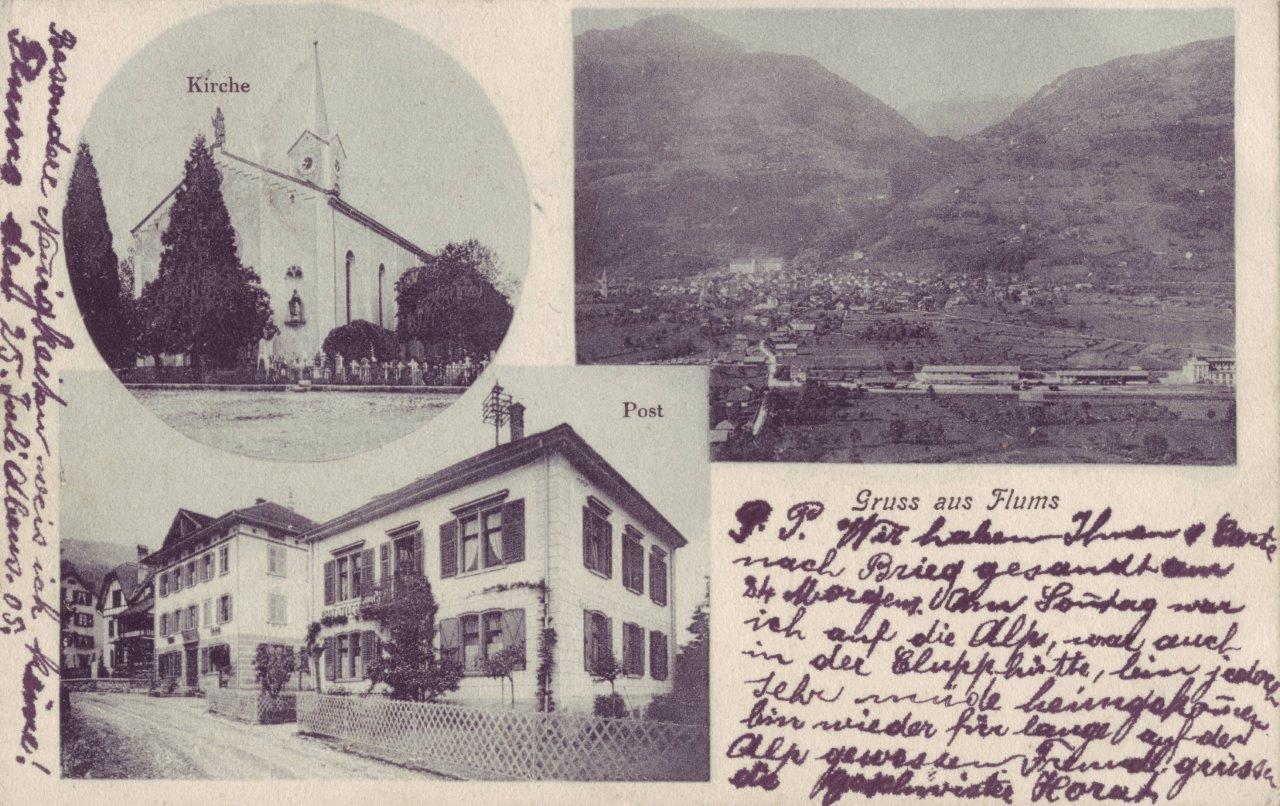 Kirche
Post
Gruss aus Flums
P. P. Wir haben Ihnen 1 Carte
nach Brieg gesandt am
24 Morgens. Am Soñtag war
ich auf die Alp, war auch
in der Clupphütte, bin jedoch
sehr müde heimgekom̃en
bin wieder für lange auf der
Alp gewessen Freundl. grüssen
die Geschwister
Besondere Neuigkeiten weis ich keine!
Flums den 25. Juli Abans. 05.